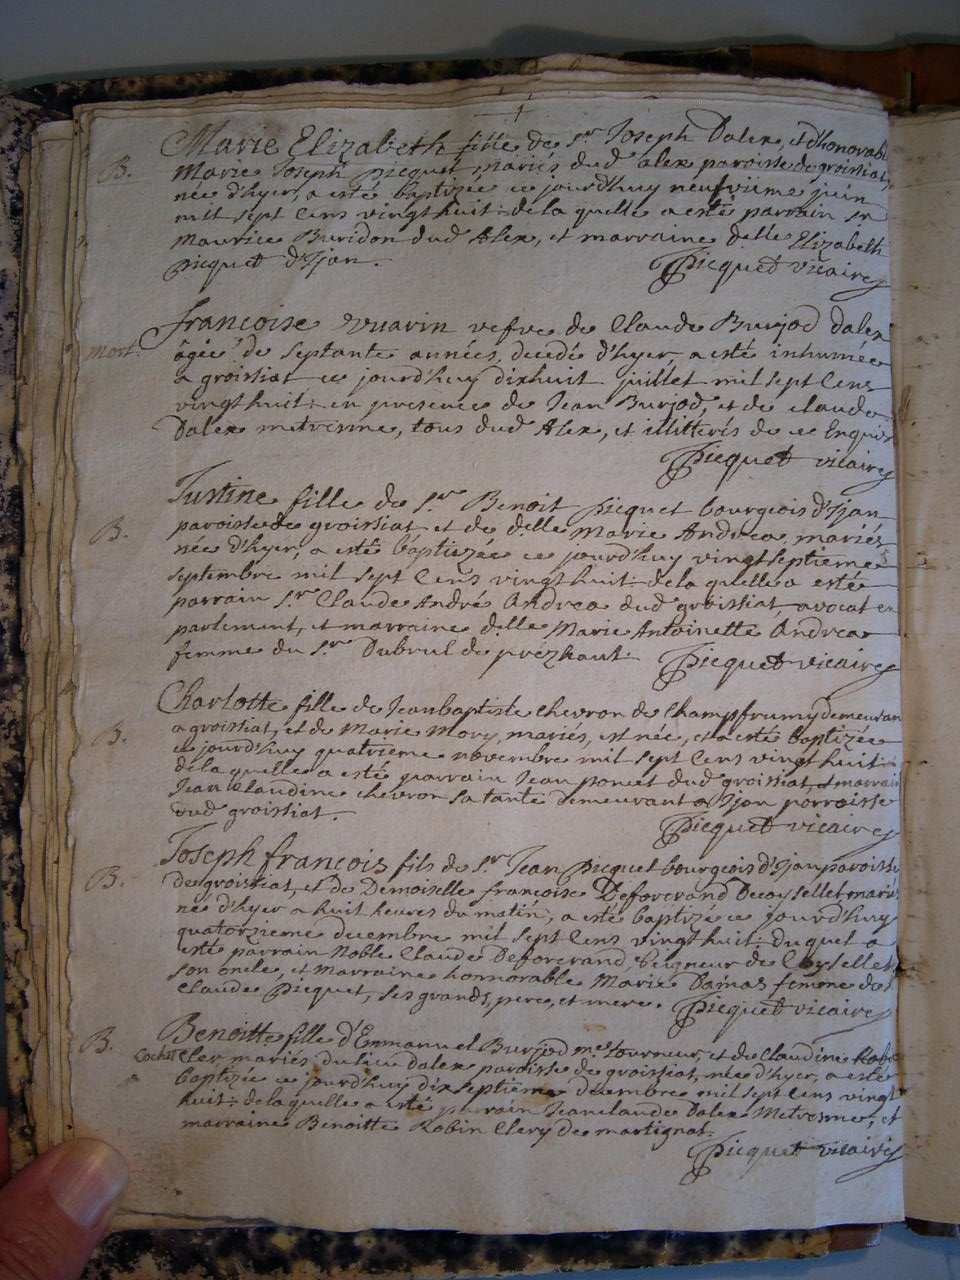 B. Marie Elizabeth fille de Sr Joseph Dalex et d'honorab
Marie Joseph picquet, mariés, dud' alex paroisse de groissiat,
née d'hyer, a esté baptizée ce jourd'huy neufviême juin
mil sept Cens vingt huit: de la quelle a esté parrain sr
Maurice Buridon dud Alex, et marraine delle Elizabeth
picquet d'Ijan. Picquet vicaire
françoise vuarin vefve de Claude Burjod dalex
Mort. âgée de septante années, decedée d'hyer, a esté inhumée
a groissiat ce jourd'huy dixhuit juillet mil sept Cens
vingt huit: en presence de Jean Burjod, et de claude
Dalex metresme, tous dud Alex, et illitterés de ce Enquis
Picquet vicaire
Justine fille de Sr Benoit picquet bourgeois d'Ijan
B. paroisse de groissiat et de delle Marie Andrea, mariés
née d'hyer, a esté baptizée ce jourd'huy vingt septieme
septembre mil sept Cens vingt huit: de la quelle a esté
parrain Sr Claude André Andrea dud groissiat, avocat en
parlement, et marraine delle Marie Antoinette Andrea
femme du Sr Dubrul de prezhaut. Picquet vicaire
Charlotte fille de Jean baptiste Chevron de Champfrumy demeuran
B. a groissiat, et de Marie Mory, mariés, est née, et a esté baptizée
ce jourd'huy quatrieme novembre mil sept Cens vingt huit:
de la quelle a esté parrain Jean poncet dud groissiat, et marrain
Jean Claudine chevron sa tante demeurant a Ijan porroisse
dud groissiat. Picquet vicaire
Joseph françois fils de Sr Jean Picquet bourgeois d'Ijan paroisse
B. de groissiat, et de Demoiselle françoise Deforcrand Decoysellet, mari
né d'hyer a huit heures du matin, a esté baptizé ce jourd'huy
quatorzieme decembre mil sept Cens vingt huit: duquel a
esté parrain Noble Claude Deforcrand, Seigneur de Coysellet
son oncle, et Marraine honnorable Marie Damas femme de
Claude Picquet, ses grands, pere, et mere. Picquet vicaire
B. Benoitte fille d'Emmanuel Burjod me tourneur, et de Claudine
Cler mariés, du lieu dalex paroisse de groissiat, née d'hyer, a esté
baptizée ce jourd'huy dix septieme decembre mil sept Cens vingt
huit: de la quelle a esté parrain Jean claude Dalex Metresme, et
marraine Benoitte Robin Clery de martignat.
Picquet vicaire